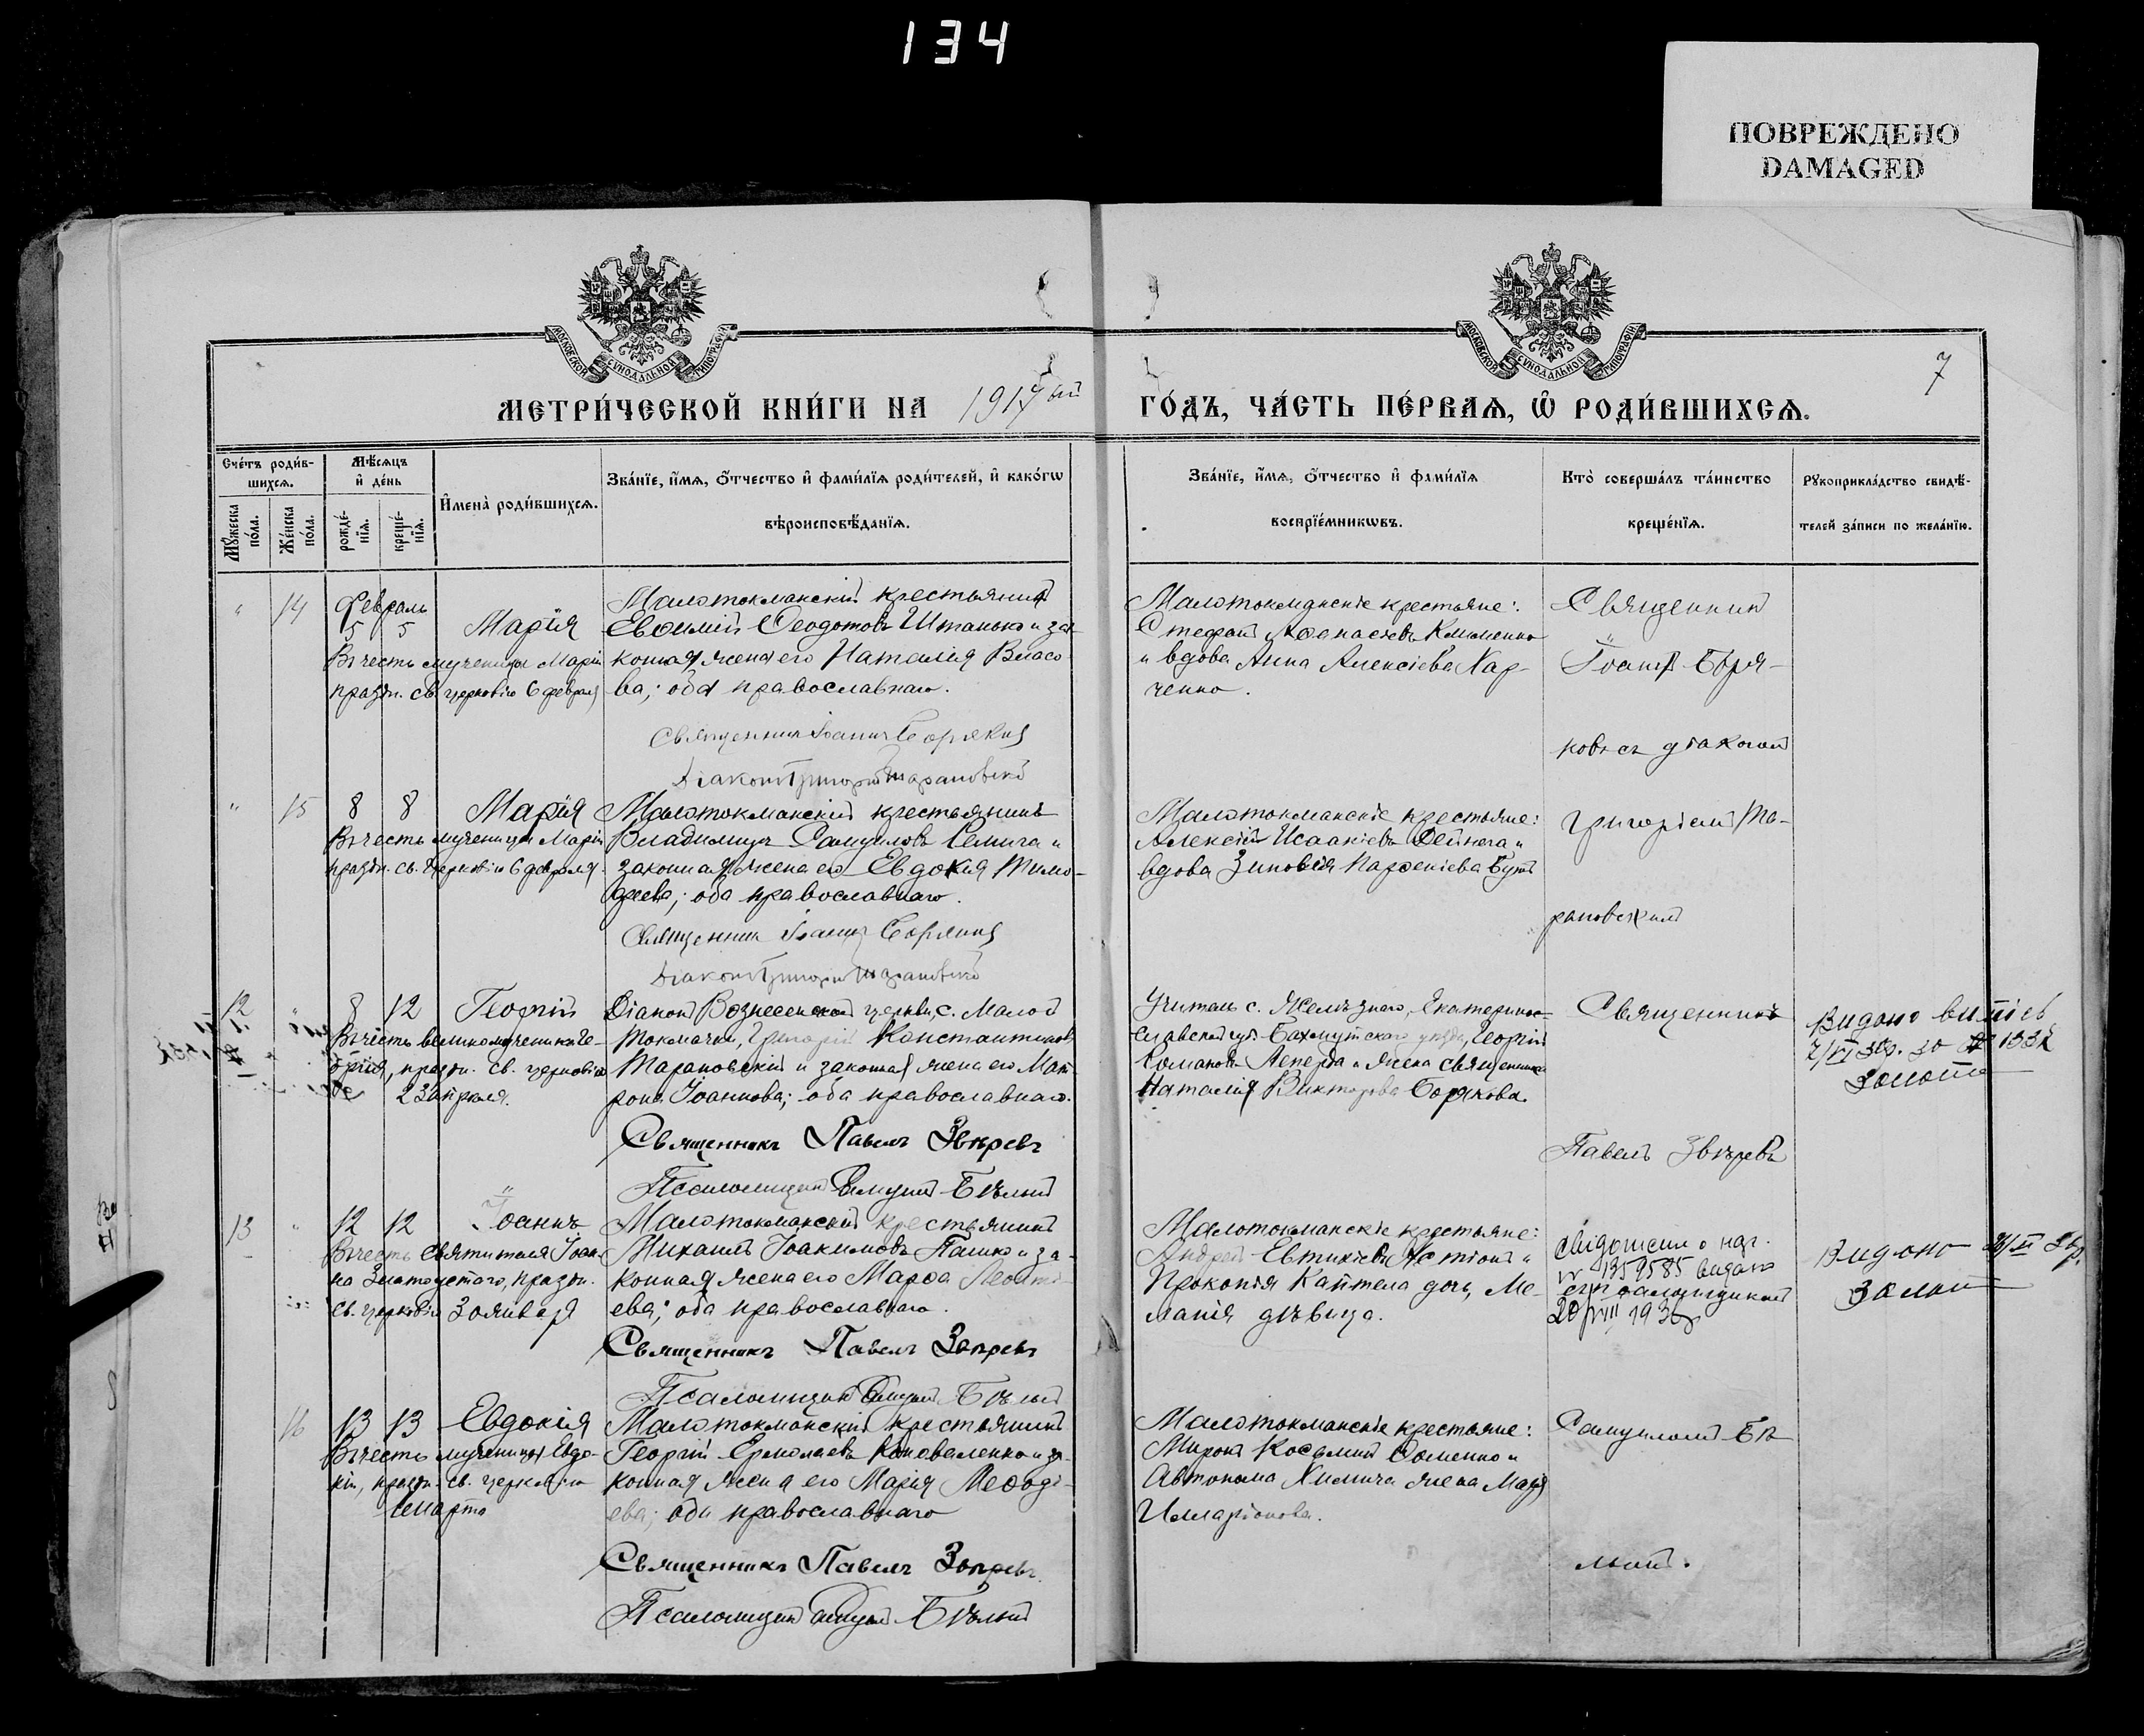 134
ПОВРЕЖДЕНО
DAMAGED
МОСКОВСКОЙ СѴНОДАЛЬНОЙ ТИПОГРАФІИ
МОСКОВСКОЙ СѴНОДАЛЬНОЙ ТИПОГРАФІИ
7
МЕТРИ́ЧЕСКОЙ КНИ́ГИ НА 1917ый
ГО́ДЪ, ЧА́СТЬ ПЕ́РВАѦ, Ѡ҆ РОДИ́ВШИХСѦ.
Сче́тъ роди́в-
шихсѧ.
Мꙋ́жеска по́ла.
Же́нска по́ла.
Мѣ́сѧцъ и҆ де́нь
рожде́-нїѧ.
креще́-нїѧ.
И҆мена̀ роди́вшихсѧ.
Зва́нїе, и҆́мѧ, ѻ҆́тчество и҆ фами́лїѧ роди́телей, и҆ како́гѡ
вѣроисповѣ́данїѧ.
Зва́нїе, и҆́мѧ, ѻ҆́тчество и҆ фами́лїѧ
воспрїе́мникѡвъ.
Кто̀ соверша́лъ та́инство
креще́нїѧ.
Рꙋкоприкла́дство свидѣ́-
телей за́писи по жела́нїю.
" 14 Февраль
5 5 Марія
Въ честь мученицы Маріи
праздн. св. церковію 6 февраля
Малотокмакскій крестьянинъ
Евѳимій Ѳеодотовъ Штанько и за-
конная жена его Наталія Власо-
ва; оба православнаго.
Священникъ Іоаннъ Боряковъ
Діаконъ Григорій Тарановскій
Малотокмакскіе крестьяне:
Стефанъ Аѳанасіевъ Клименко
и вдова Анна Алексіева Хар-
ченко.
Священник
Іоаннъ Боря-
ковъ съ діакономъ
" 15 8 8 Марія
Въ честь мученицы Маріи
праздн. св. церковію 6 февраля.
Малотокмакскій крестьянинъ
Владимиръ Самуиловъ Семига и
законная жена его Евдокія Тимо-
ѳеева; оба православнаго.
Священник Іоаннъ Боряковъ
Діаконъ Григорій Тарановскій
Малотокмакскіе крестьяне:
Алексій Исаакіевъ Дейнега и
вдова Зиновія Парѳеніева Бутъ
Григоріемъ Та-
рановскимъ
12 " 8 12 Георгій
Въ честь великомученика Ге-
оргія, праздн. св. церковію
23 апреля.
Діаконъ Вознесенской церкви, с. Малой
Токмачки, Григорій Константиновъ
Тарановскій и законная жена его Мат-
рона Іоаннова; оба православнаго.
Священникъ Павелъ Звѣревъ
Псаломщикъ Самуилъ Бѣлый
Учитель с. Желѣзнаго, Екатерино-
славской губ. Бахмутскаго уѣзда, Георгій
Романовъ Леперда и жена священника
Наталія Викторова Борякова.
Священникъ
Павелъ Звѣревъ
Видано
1932
13 " 12 12 Іоаннъ
Въ честь святителя Іоан-
на Златоустаго, праздн.
св. церковію 30 января
Малотокмакскій крестьянинъ
Михаилъ Іоакимовъ Пашко и за-
конная жена его Марѳа Леонті-
ева; оба православнаго.
Священникъ Павелъ Звѣревъ
Псаломщикъ Самуилъ Бѣлый
Малотокмакскіе крестьяне:
Андрей Евтихіевъ
Прокопія Каптела дочь, Ме-
ланія дѣвица.
1359585 видано
съ псаломщикомъ
Видано
16 13 13 Евдокія
Въ честь мученицы Евдо-
кіи, праздн. св. церковію
1 марта
Малотокмакскій крестьянинъ
Георгій Ермолаевъ Коноваленко и за-
конная жена его Марія Меѳоді-
ева; оба православнаго
Священникъ Павелъ Звѣревъ
Псаломщикъ Самуилъ Бѣлый
Малотокмакскіе крестьяне:
Миронъ Косьминъ Сименко и
Автонома Химича жена Марія
Илларіонова.
Самуиломъ Бѣ-
лымъ.